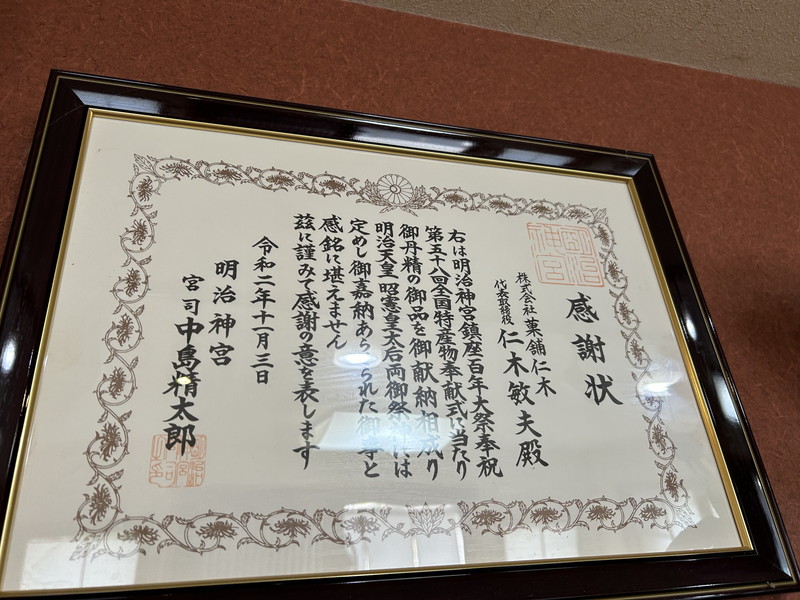 感謝状
株式会社 菓舗仁木
代表取締役 仁木敏夫殿
右は明治神宮鎮座百年大祭奉祝
第五十八回全国特産物奉献式に当たり
御丹精の御品を御献納相成り
明治天皇昭憲皇太后両御祭には
定めし御嘉納あらられた御事と
感銘に堪えません
茲に謹みて感謝の意を表します
令和二年十一月三日
明治神宮
宮司 中島精太郎
明治神宮